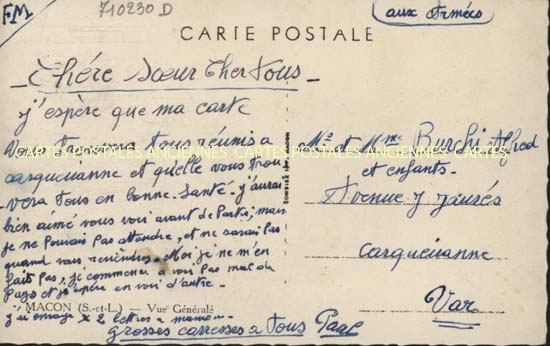 F.M.
710230 D
aux Armées
CARTE POSTALE
Chère Soeur Cher Tous
j'espère que ma carte
vous trouvera tous réunis a
carqueiranne et quelle vous trou
vera tous en bonne Santé. j'aurai
bien aimé vous voir avant de Partir, mais
je ne pouvais pas attendre, et ne savais pas
quand vous reviendrez. Moi je ne m'en
fait pas, je commence a voir pas mal du
Pays et j'espère en voir d'autre.
MACON (S.-et-L.) — Vue Générale
j'ai envoyé 2 lettres a maman.
grosses carresses a tous Paul
CARTES POSTALES ANCIENNES CARTES POSTALES ANCIENNES CARTES POSTALES ANCIENNES
COMBIER IMP. MACON
Mr et Mme Burchi Alfred
et enfants.
Avenue J Jaurés
Carqueiranne
Var